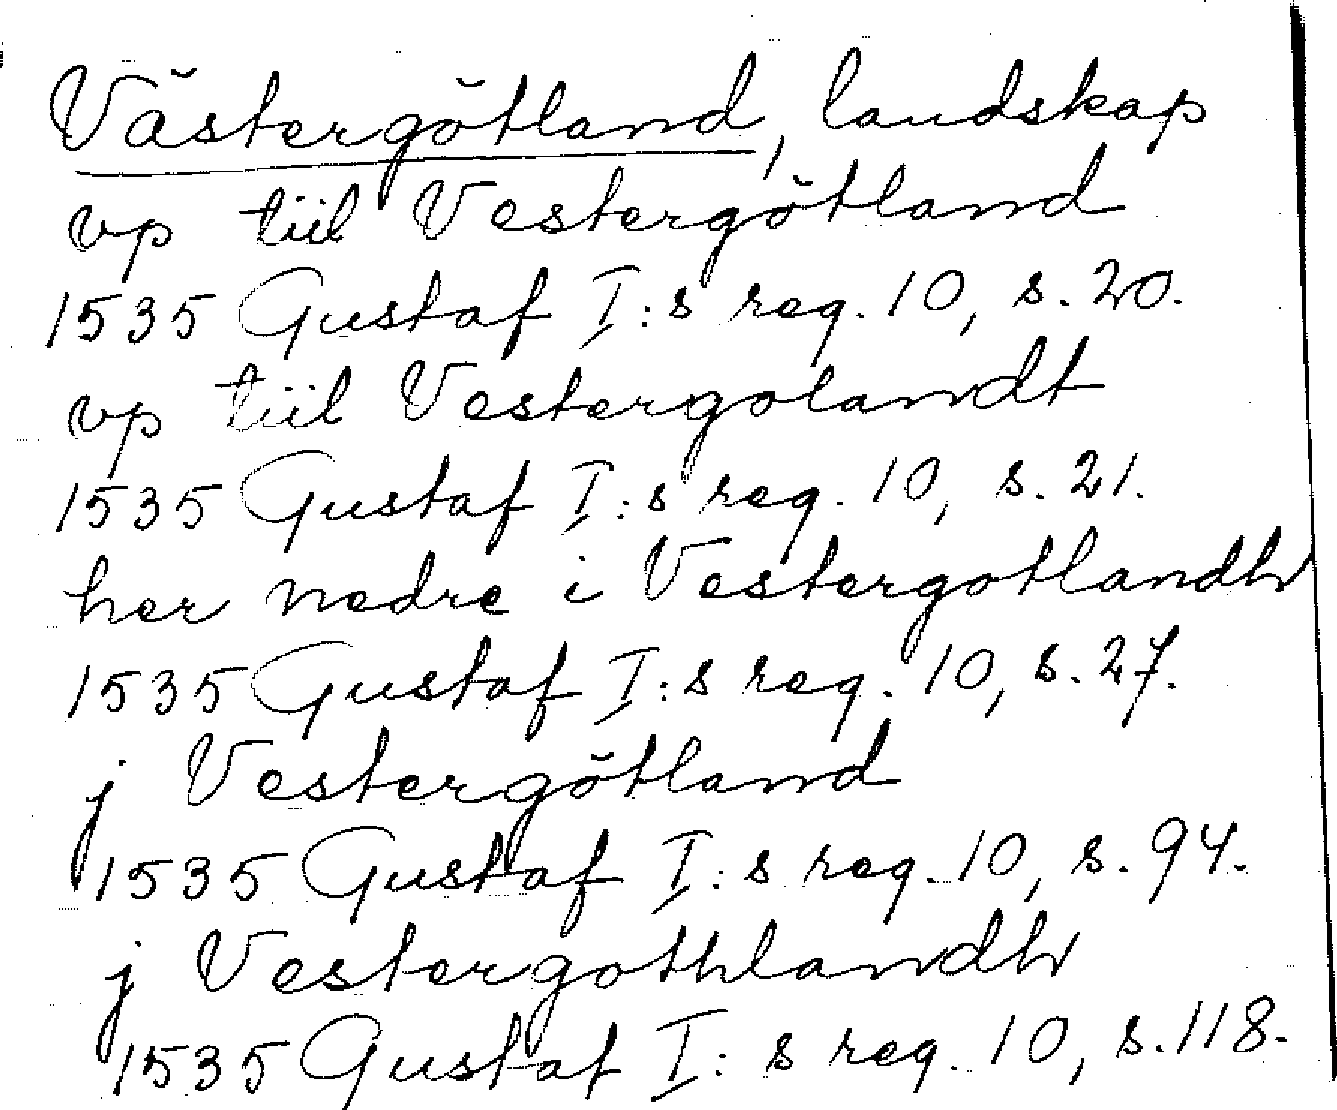 Västergötland, landskap
vp tiil Vestergötland
1535 Gustaf I:s reg. 10, s. 20.
vp tiil Vestergolandt
1535 Gustaf I:s reg. 10, s. 21.
her nedre i Vestergotlandh
1535 Gustaf I:s reg. 10, s. 27.
j Vestergötland
1535 Gustaf I:s reg. 10, s. 94.
j Vestergothlandh
1535 Gustaf I:s reg. 10, s. 118.